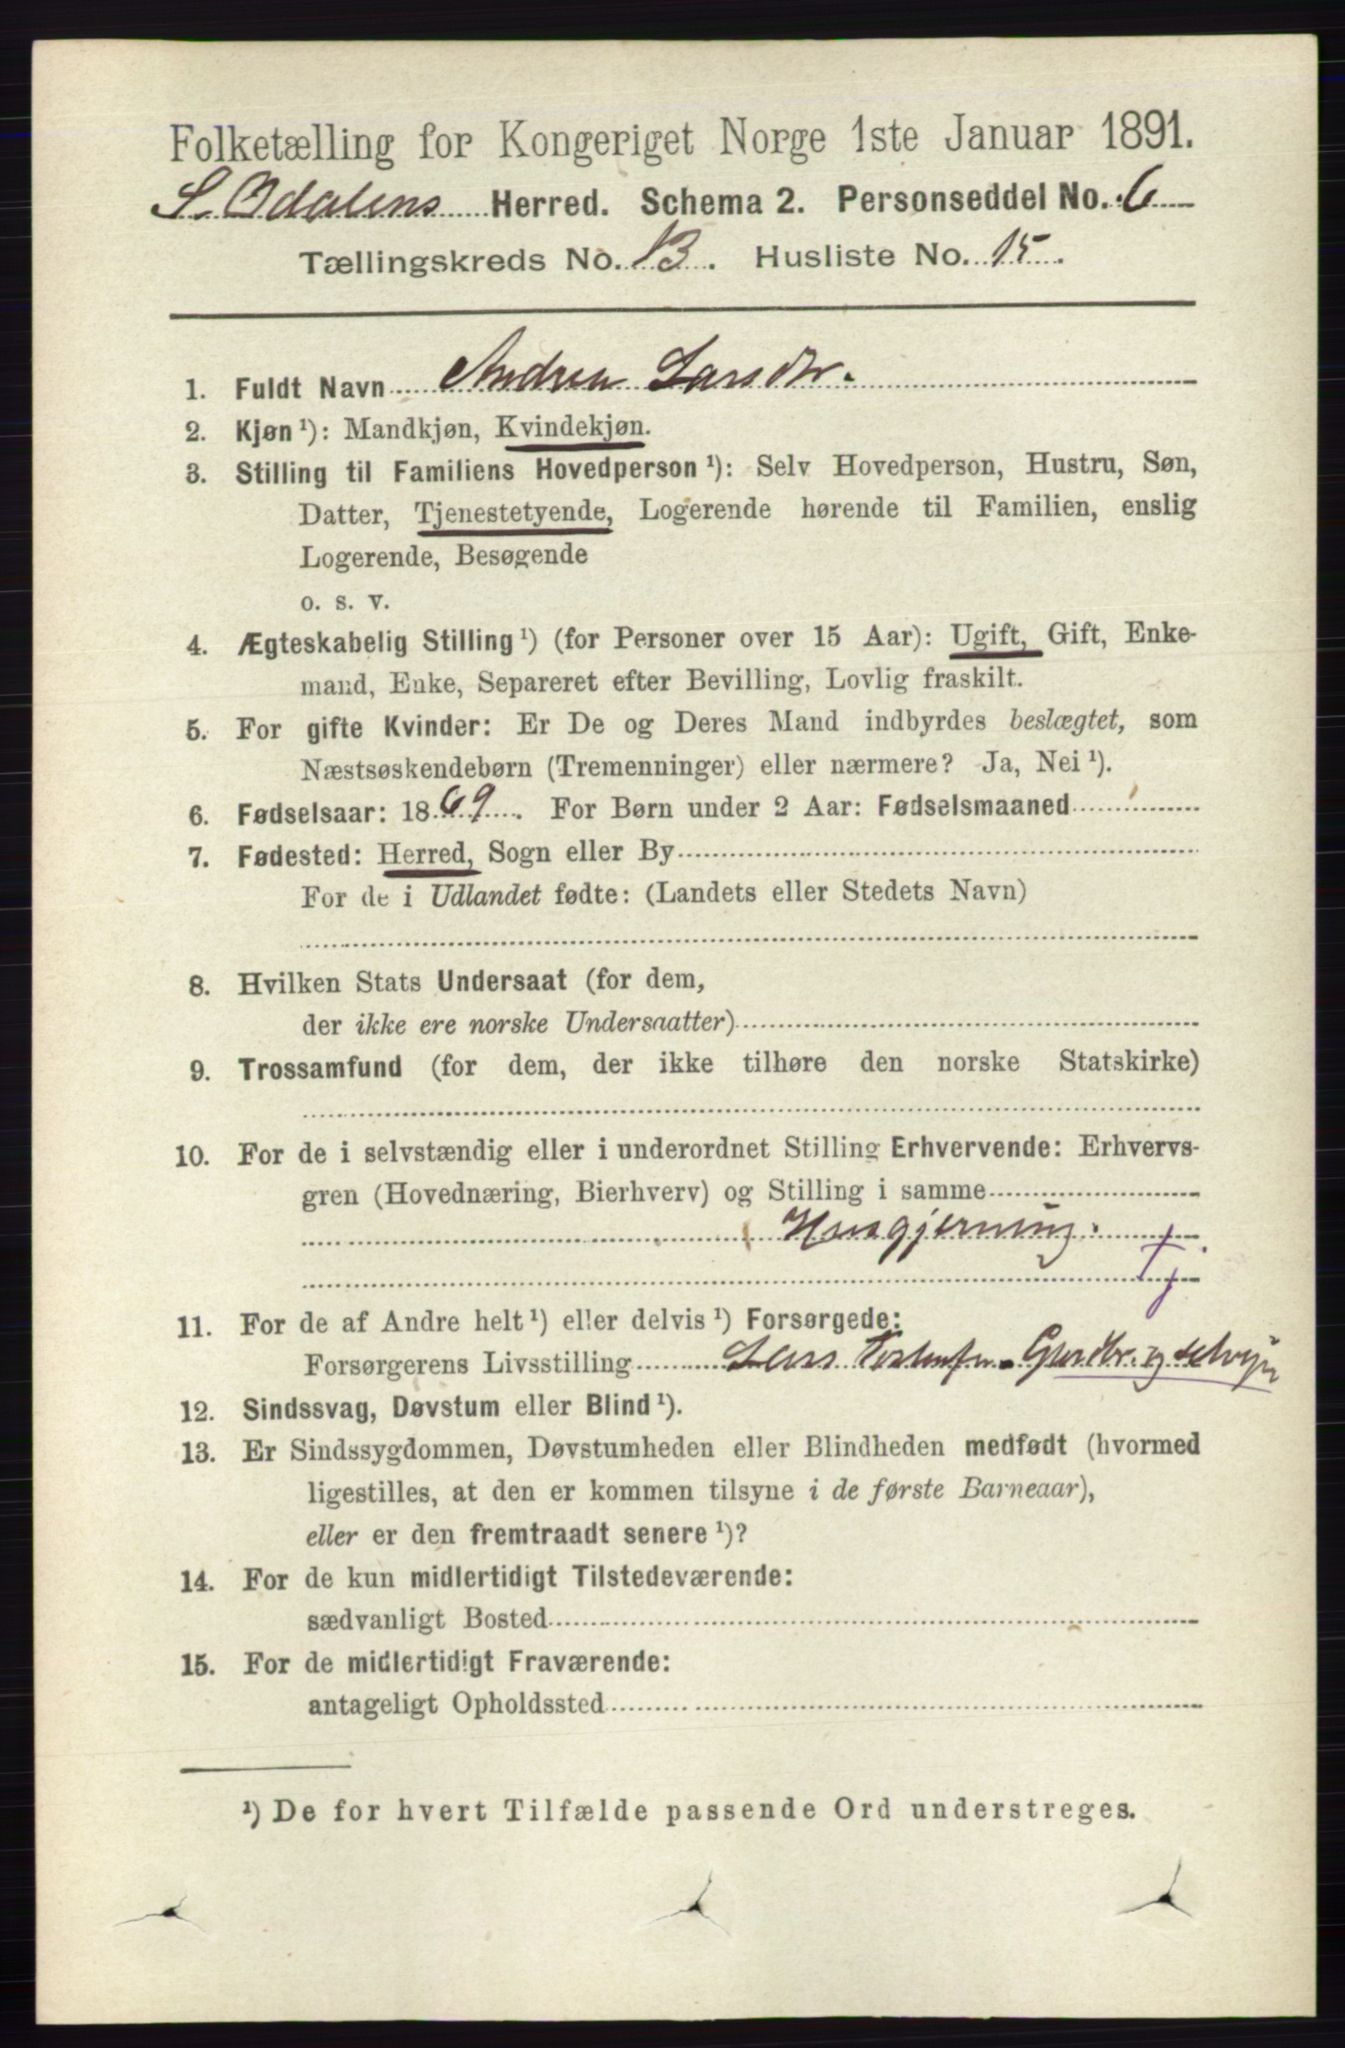 Folketælling for Kongeriget Norge 1ste Januar 1891.
S. Odalens Herred. Schema 2. Personseddel No. 6
Tællingskreds No. 13. Husliste No. 15.
1. Fuldt Navn Andrea Larsdtr.
2. Kjøn¹): Mandkjøn, Kvindekjøn.
3. Stilling til Familiens Hovedperson¹): Selv Hovedperson, Hustru, Søn,
Datter, Tjenestetyende, Logerende hørende til Familien, enslig
Logerende, Besøgende
o. s. v.
4. Ægteskabelig Stilling¹) (for Personer over 15 Aar): Ugift, Gift, Enke-
mand, Enke, Separeret efter Bevilling, Lovlig fraskilt.
5. For gifte Kvinder: Er De og Deres Mand indbyrdes beslægtet, som
Næstsøskendebørn (Tremenninger) eller nærmere? Ja, Nei¹).
6. Fødselsaar: 1869. For Børn under 2 Aar: Fødselsmaaned
7. Fødested: Herred, Sogn eller By
For de i Udlandet fødte: (Landets eller Stedets Navn)
8. Hvilken Stats Undersaat (for dem,
der ikke ere norske Undersaatter)
9. Trossamfund (for dem, der ikke tilhøre den norske Statskirke)
10. For de i selvstændig eller i underordnet Stilling Erhvervende: Erhvervs-
gren (Hovednæring, Bierhverv) og Stilling i samme
Husgjerning. Tj.
11. For de af Andre helt¹) eller delvis¹) Forsørgede:
Forsørgerens Livsstilling Lars Gardbr. og selvejer
12. Sindssvag, Døvstum eller Blind¹).
13. Er Sindssygdommen, Døvstumheden eller Blindheden medfødt (hvormed
ligestilles, at den er kommen tilsyne i de første Barneaar),
eller er den fremtraadt senere¹)?
14. For de kun midlertidigt Tilstedeværende:
sædvanligt Bosted
15. For de midlertidigt Fraværende:
antageligt Opholdssted
¹) De for hvert Tilfælde passende Ord understreges.